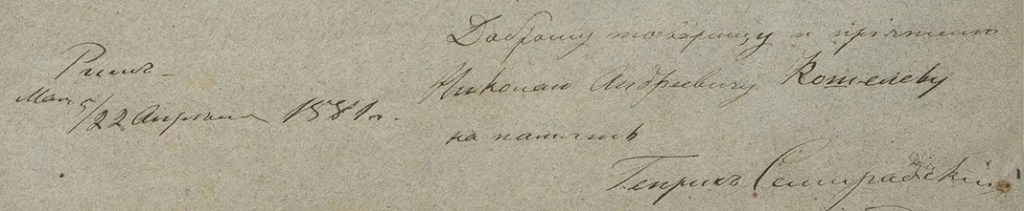 Римъ
Мая 5/22 Апрѣля 1881 г.
Доброму товарищу и пріятелю
Николаю Андреевичу Кошелеву
на память
Генрихъ Семирадскій